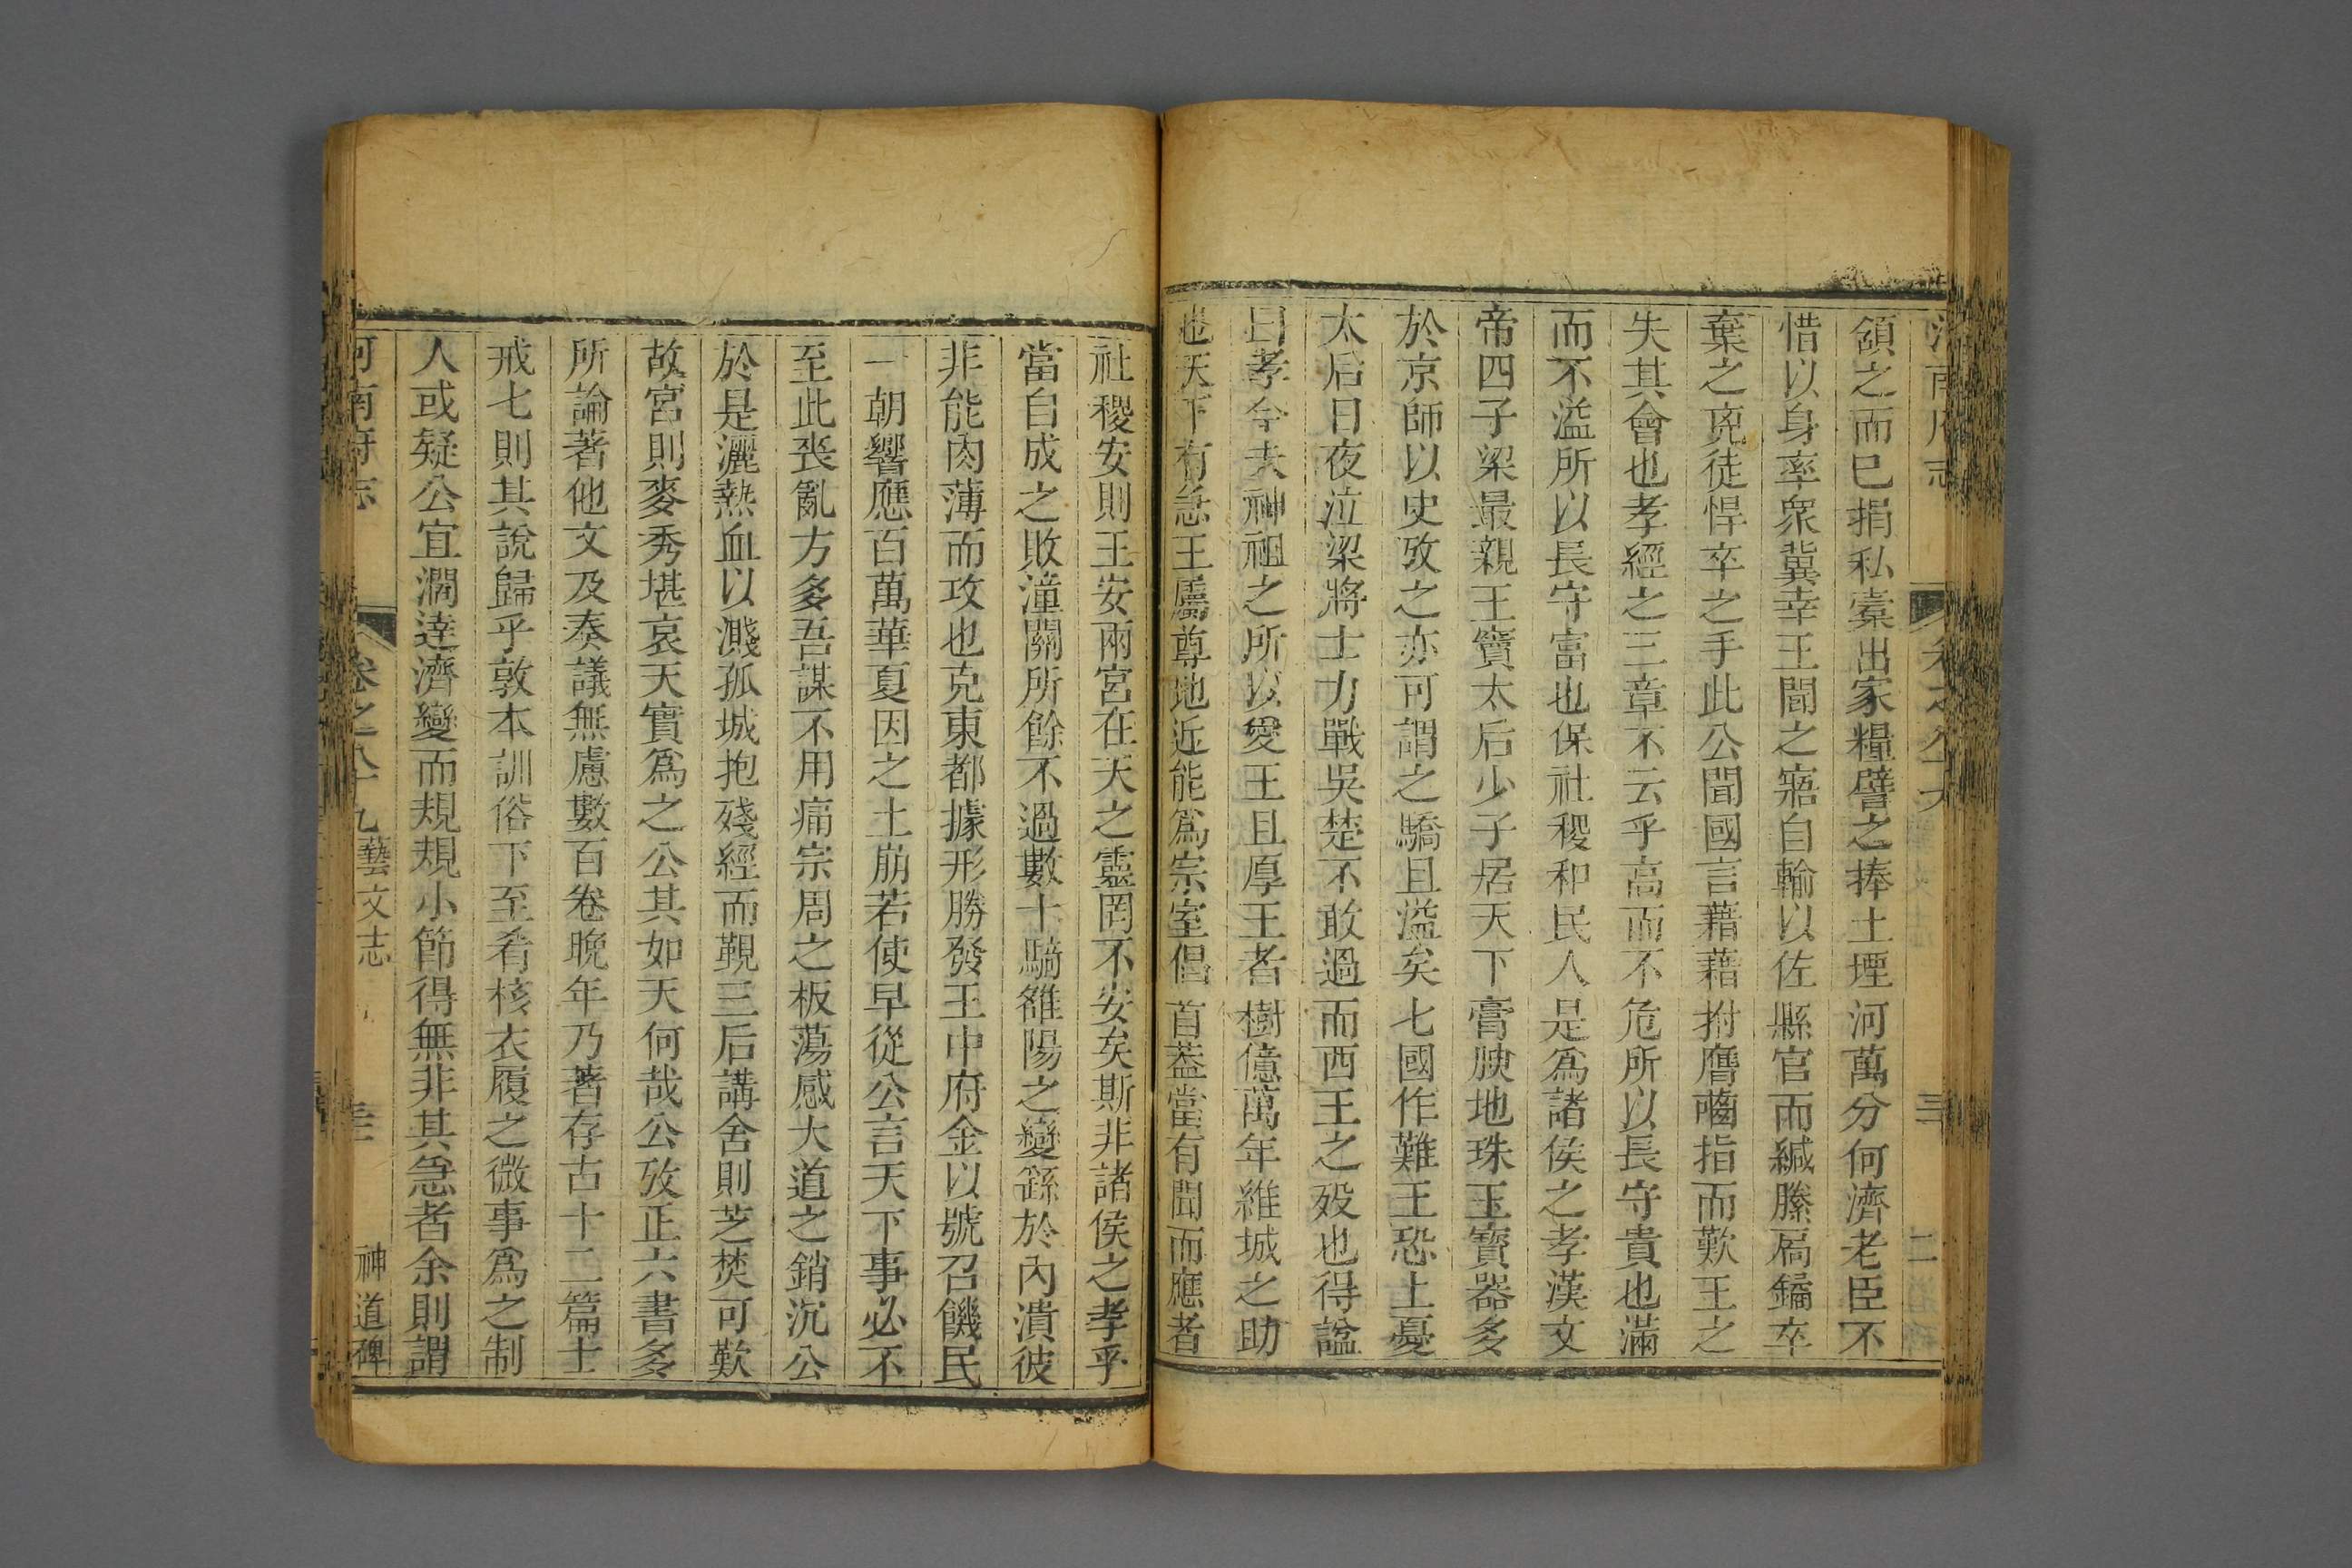 額之而已捐私槖出家糧譬之捧土堙河萬分何濟老臣不
惜以身率衆冀幸王聞之寤自輸以佐縣官而緘縢扃鐍卒
棄之宼徒悍卒之手此公聞國言藉藉拊膺齧指而歎王之
失其會也孝經之三章不云乎高而不危所以長守貴也滿
而不溢所以長守富也保社稷和民人是爲諸侯之孝漢文
帝四子梁最親王竇太后少子居天下膏腴地珠玉寶器多
於京師以史攷之亦可謂之驕且溢矣七國作難王恐上憂
太后日夜泣梁將士力戰吳楚不敢過而西王之歿也得諡
曰孝今夫神祖之所以愛王且厚王者樹億萬年維城之助
也天下有急王屬尊地近能爲宗室倡首葢當有聞而應者
社稷安則王安兩宮在天之靈罔不安矣斯非諸侯之孝乎
當自成之敗潼關所餘不過數十騎雒陽之變繇於內潰彼
非能肉薄而攻也克東都據形勝發王中府金以號召饑民
一朝響應百萬華夏因之土崩若使早從公言天下事必不
至此喪亂方多吾謀不用痛宗周之板蕩感大道之銷沉公
於是灑熱血以濺孤城抱殘經而覲三后講舍則芝焚可歎
故宮則麥秀堪哀天實爲之公其如天何哉公攷正六書多
所論著他文及奏議無慮數百卷晚年乃著存古十二篇士
戒七則其說歸乎敦本訓俗下至肴核衣履之微事爲之制
人或疑公宜濶達濟變而規規小節得無非其急者余則謂
河南府志 卷之八十九 藝文志 神道碑